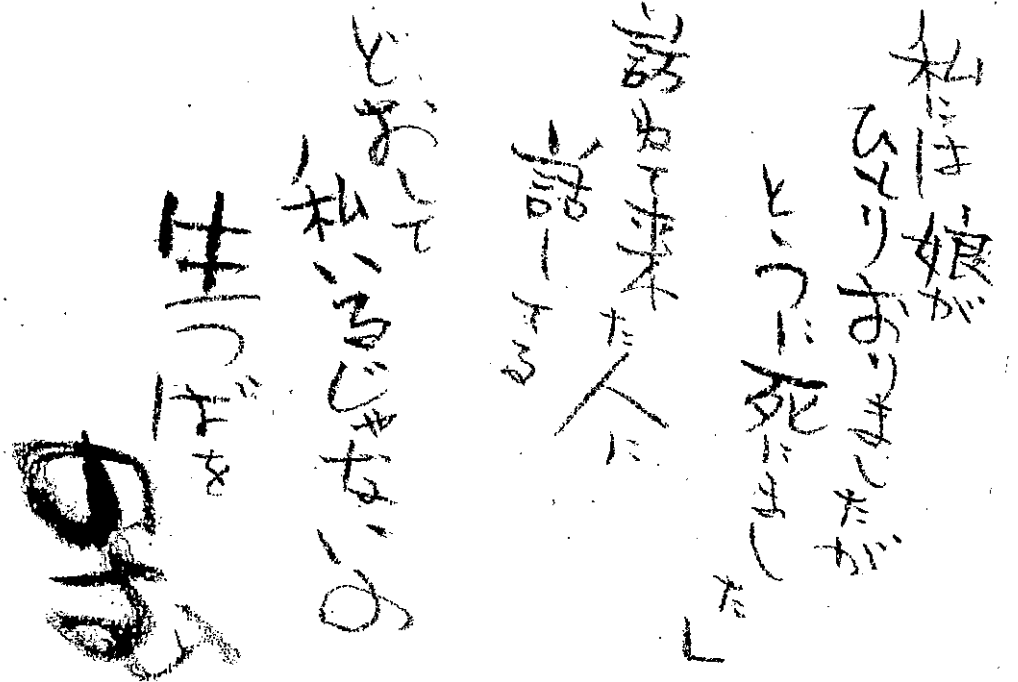 私には娘が
ひとりおりましたが
とうに死にました」
訪ねて来た人に
話してる
どおして
私いるじゃないの
生つばを
のむ